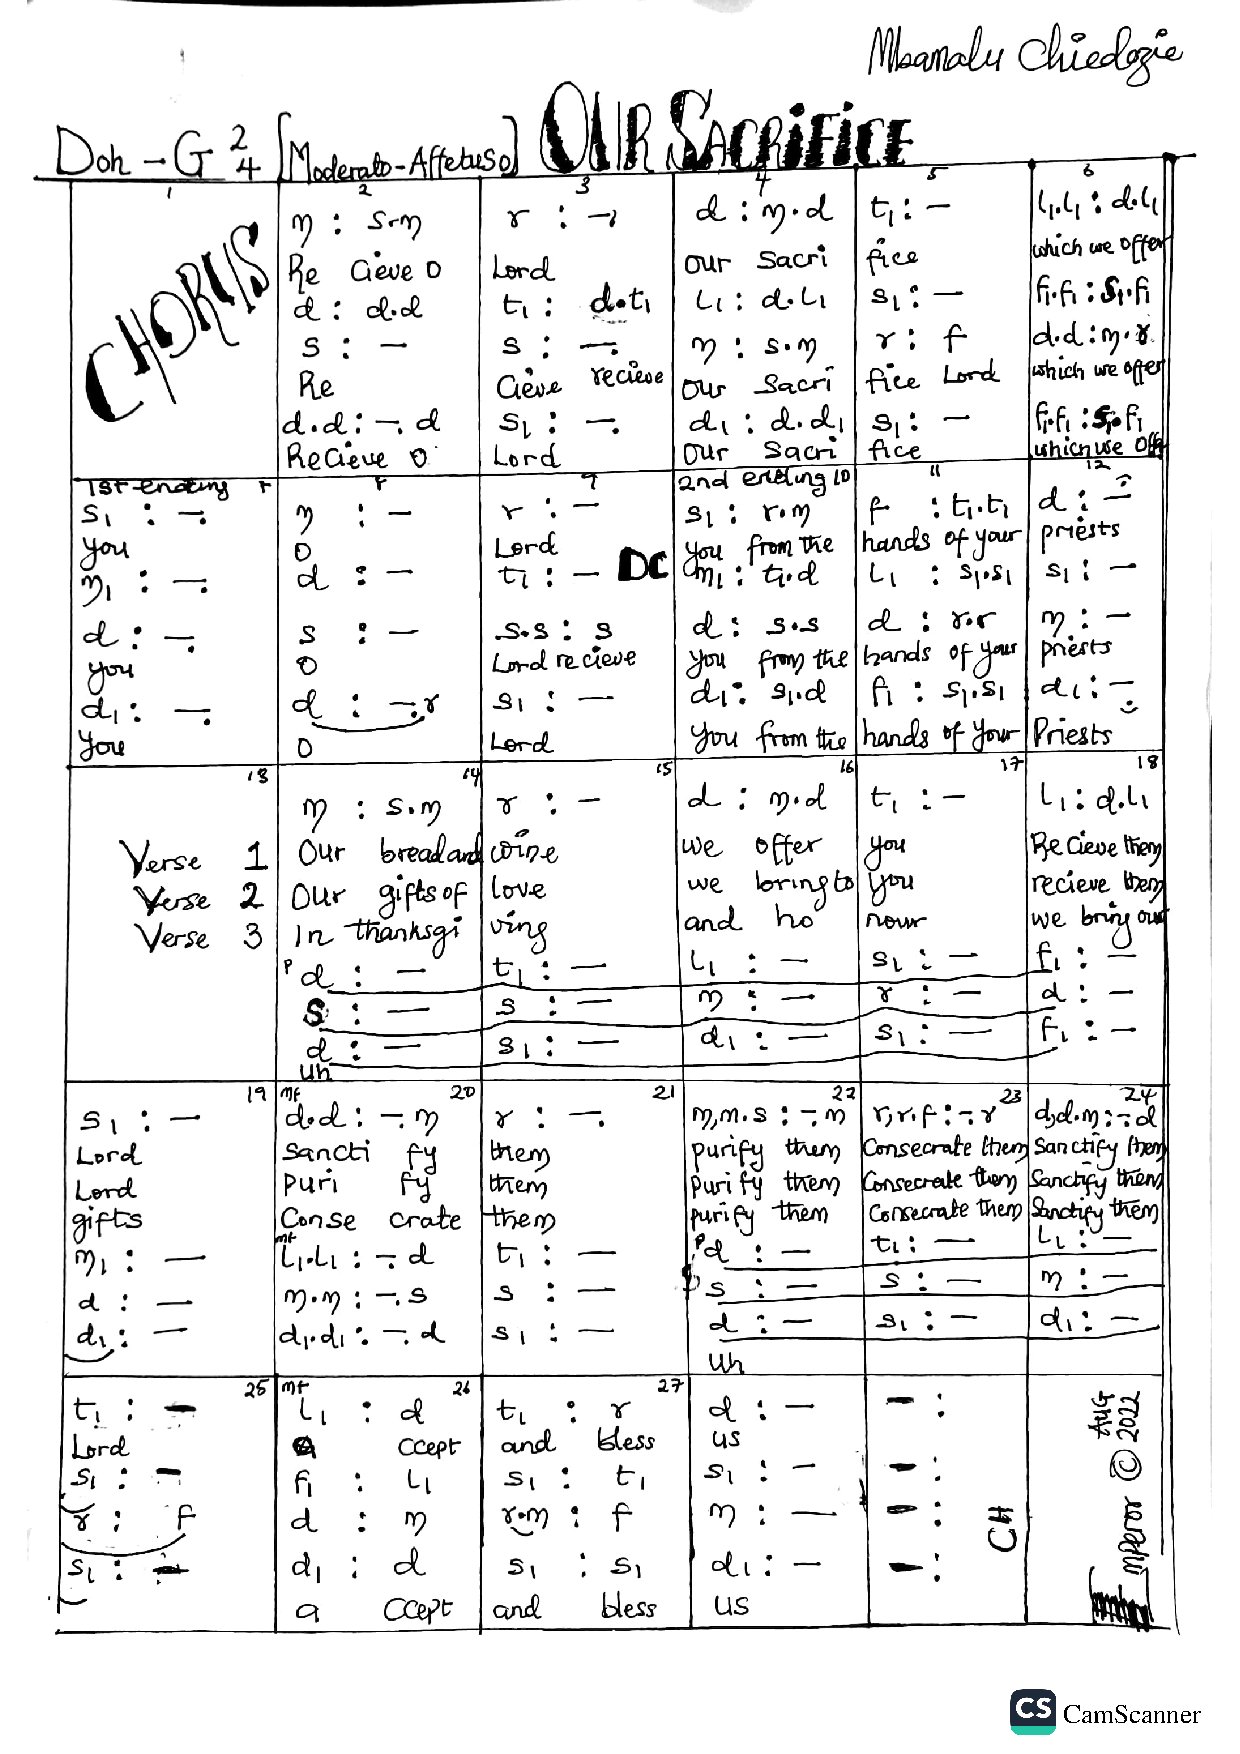 Mbamalu Chiedozie
Doh - G 2/4 [Moderato-Affetuso] OUR SACRIFICE
1 2 3 4 5 6
CHORUS
m : s.m r : -, d : m.d t₁ : - l₁.l₁ : d.l₁
Re cieve O Lord our Sacri fice which we offer
d : d.d t₁ : d.t₁ l₁ : d.l₁ s₁ : - f₁.f₁ : s₁.f₁
s : - s : -. m : s.m r : f d.d : m.r
Re cieve recieve our Sacri fice Lord which we offer
d.d : -. d s₁ : -. d₁ : d.d₁ s₁ : - f₁.f₁ : s₁.f₁
Recieve O Lord our Sacri fice which we off
1st ending 9 2nd ending 10 11 12
s₁ : -. m : - r : - s₁ : r.m f : t₁.t₁ d : -
you O Lord DC you from the hands of your priests
m₁ : -. d : - t₁ : - m₁ : t₁.d l₁ : s₁.s₁ s₁ : -
d : -. s : - s.s : s d : s.s d : r.r m : -
you O Lord recieve you from the hands of your priests
d₁ : -. d : -.r s₁ : - d₁ : s₁.d f₁ : s₁.s₁ d₁ : -
you O Lord you from the hands of your Priests
13 14 15 16 17 18
m : s.m r : - d : m.d t₁ : - l₁ : d.l₁
Verse 1 Our bread and wine we offer you Recieve them
Verse 2 Our gifts of love we bring to you recieve them
Verse 3 In thanksgi ving and ho nour we bring our
p d : - t₁ : - l₁ : - s₁ : - f₁ : -
s : - s : - m : - r : - d : -
d : - s₁ : - d₁ : - s₁ : - f₁ : -
uh
19 mf 20 21 22 23 24
s₁ : - d.d : -. m r : -. m,m.s : -. m r,r.f : -. r d,d.m : -. d
Lord Sancti fy them purify them Consecrate them Sanctify them
Lord puri fy them purify them Consecrate them Sanctify them
gifts Conse crate them purify them Consecrate them Sanctify them
m₁ : - mf l₁.l₁ : -. d t₁ : - p d : - t₁ : - l₁ : -
d : - m.m : -. s s : - p s : - s : - m : -
d₁ : - d₁.d₁ : -. d s₁ : - d : - s₁ : - d₁ : -
uh
25 mf 26 27
t₁ : - l₁ : d t₁ : r d : - - :
Lord a ccept and bless us
s₁ : - f₁ : l₁ s₁ : t₁ s₁ : - - :
r : f d : m r.m : f m : - - :
s₁ : - d₁ : d s₁ : s₁ d₁ : - - :
a ccept and bless us
CH
mperor © AUG 2022
CS CamScanner